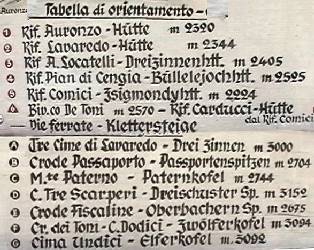 Auronzo
Tabella di orientamento -
1 Rif. Auronzo - Hütte m 2320
2 Rif. Lavaredo - Hütte m 2344
3 Rif A. Locatelli - Dreizinnenhtt. m 2405
4 Rif. Pian di Cengia - Büllelejochhtt. m 2525
5 Rif. Comici - Zsigmondyhtt. m 2224
Biv.co De Toni m 2570 - Rif. Carducci - Hütte
dal Rif. Comici
Vie ferrate - Klettersteige
A Tre Cime di Lavaredo - Drei Zinnen m 3000
B Crode Passaporto - Passportenspitzen m 2704
C M.te Paterno - Paternkofel m 2744
D C. Tre Scarperi - Dreischuster Sp. m 3152
E Crode Fiscaline - Oberbachern Sp. m 2675
F Cr. dei Toni - C. Dodici - Zwölferkofel m 3094
G Cima Undici - Elferkofel m 3092